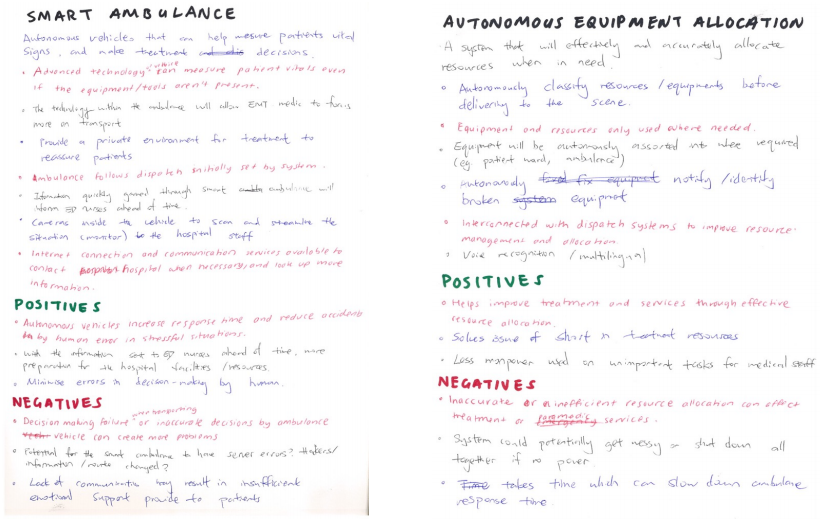 SMART AMBULANCE
Autonomous vehicles that can help mesure patients vital
signs, and make treatment decisions.
• Advanced technology can measure patient vitals even
if the equipment/tools aren't present.
• The technology within the ambulance will allow EMT medic to focus
more on transport
• Provide a private environment for treatment to
reassure patients
• Ambulance follows dispatch initially set by system.
• Information quickly gained through smart ambulance will
inform ED nurses ahead of time.
• Cameras inside the vehicle to scan and streamline the
situation (monitor) to the hospital staff
• Internet connection and communication services available to
contact hospital when necessary, and look up more
information.
POSITIVES
• Autonomous vehicles increase response time and reduce accidents
by human error in stressful situations.
• with the information sent to ED nurses ahead of time, more
preparation for the hospital facilities/resources.
• Minimise errors in decision-making by human.
NEGATIVES
• Decision making failure or inaccurate decisions by ambulance
vehicle can create more problems
• Potential for the smart ambulance to have server errors? Hackers/
information/routes changed?
• Lack of communication may result in insufficient
emotional support provide to patients
AUTONOMOUS EQUIPMENT ALLOCATION
A system that will effectively and accurately allocate
resources when in need.
• Autonomously classify resources/equipments before
delivering to the scene.
• Equipment and resources only used where needed.
• Equipment will be autonomously assorted into where required
(eg. patient ward, ambulance)
• Autonomously fix equipment notify/identify
broken system equipment
• Interconnected with dispatch systems to improve resource
management and allocation.
• Voice recognition/multilingual
POSITIVES
• Helps improve treatment and services through effective
resource allocation.
• Solves issue of short in treatment resources
• Less manpower used on unimportant tasks for medical staff
NEGATIVES
• Inaccurate or inefficient resource allocation can affect
treatment or paramedic services.
• System could potentially get messy or shut down all
together if no power.
• Time takes time which can slow down ambulance
response time.